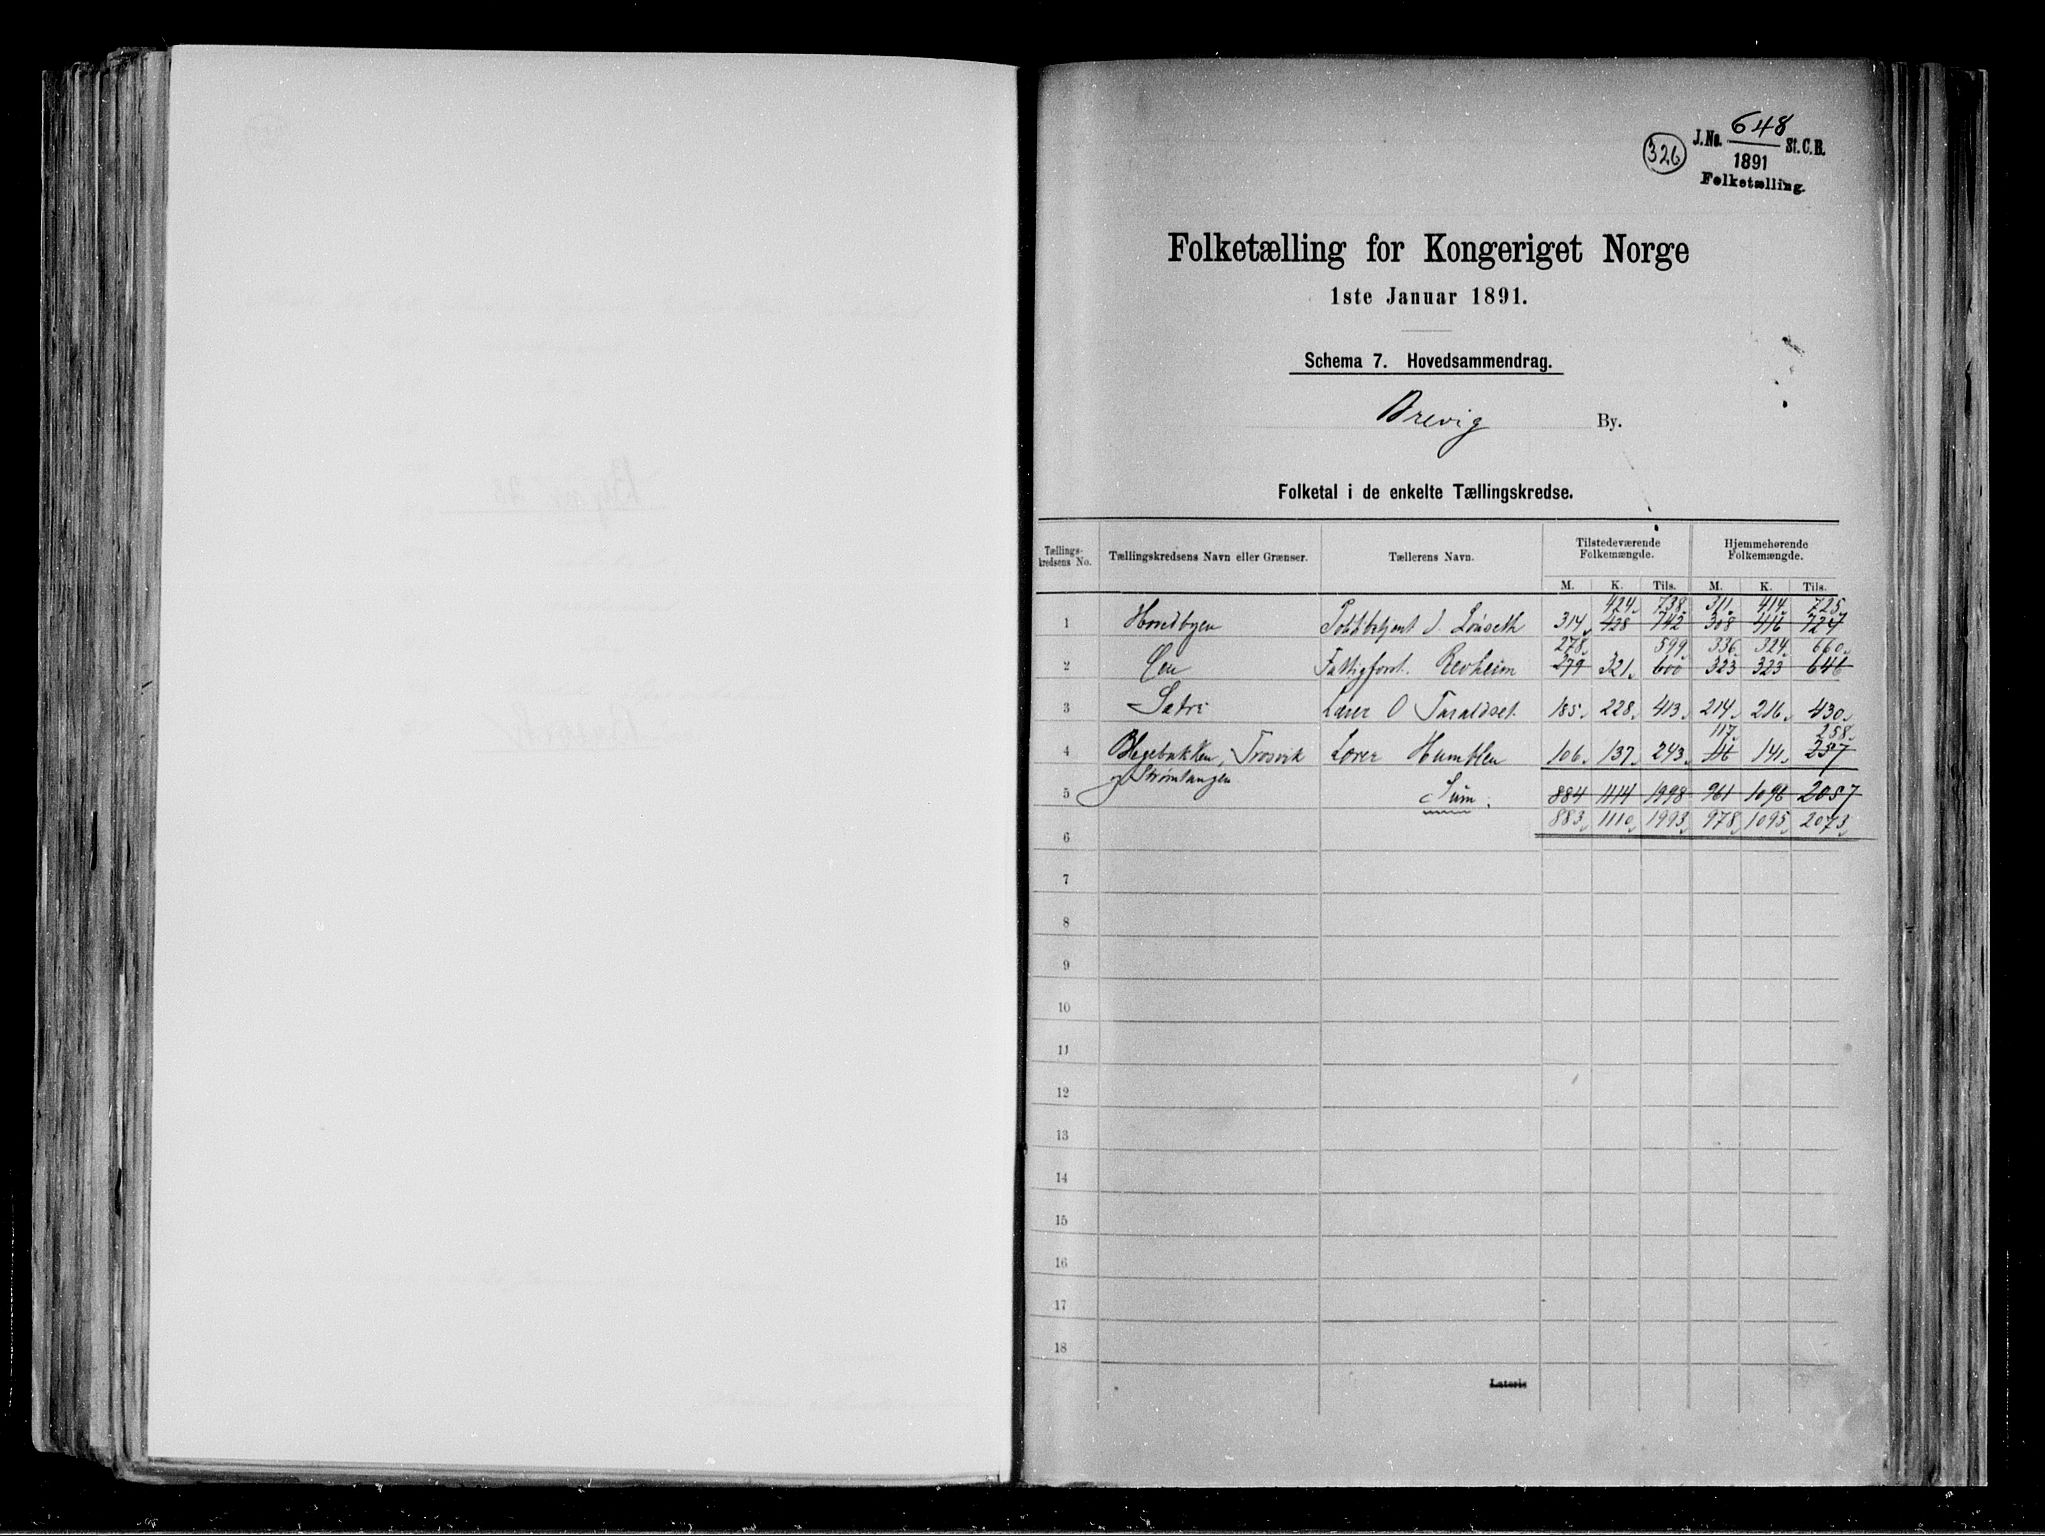 648
326 J.No. St.C.B.
1891
Folketælling.
Folketælling for Kongeriget Norge
1ste Januar 1891.
Schema 7. Hovedsammendrag.
Brevig By.
Folketal i de enkelte Tællingskredse.
Tællingskredsens No. Tællingskredsens Navn eller Grænser. Tællerens Navn. Tilstedeværende Folkemængde. Hjemmehørende Folkemængde.
M. K. Tils. M. K. Tils.
424 738 311 414 725
1 Hovedbyen Toldbetjent J. Lönseth 314 428 742 308 416 724
278 599 336 324 660
2 Øen Fattigforst. Revheim 279 321 600 323 323 646
3 Sætre Lærer O Taraldset 185 228 413 214 216 430
117 258
4 Blegebakken, Trosvik Lærer Humblen 106 137 243 116 141 257
og Strømtangen
5 Sum. 884 1114 1998 961 1096 2057
883 1110 1993 978 1095 2073
6
7
8
9
10
11
12
13
14
15
16
17
18
Lateris